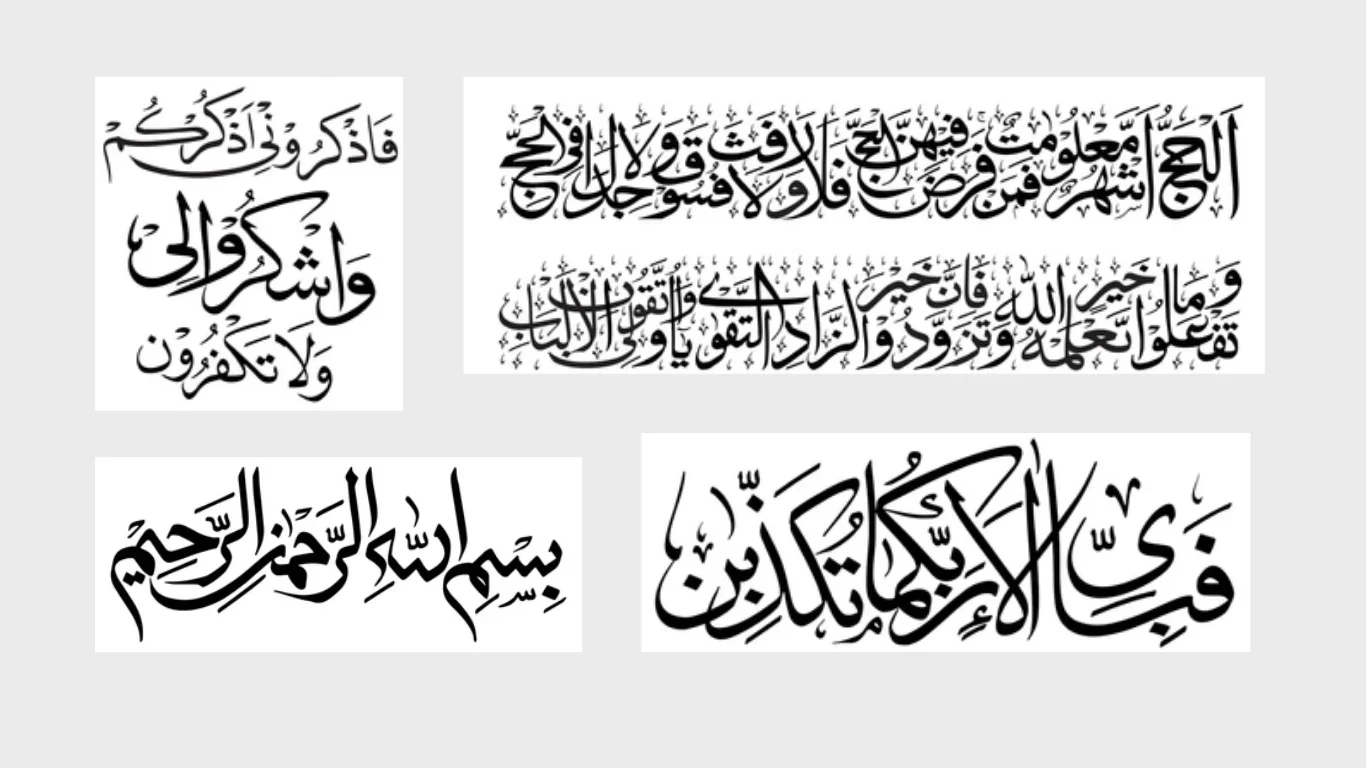 فَاذْكُرُوْنِيْ اَذْكُرْكُمْ
وَاشْكُرُوْا لِيْ
وَلَا تَكْفُرُوْن
اَلْحَجُّ اَشْهُرٌ مَّعْلُوْمٰتٌ فَمَنْ فَرَضَ فِيْهِنَّ الْحَجَّ فَلَا رَفَثَ وَلَا فُسُوْقَ وَلَا جِدَالَ فِي الْحَجِّ
وَمَا تَفْعَلُوْا مِنْ خَيْرٍ يَّعْلَمْهُ اللّٰهُ وَتَزَوَّدُوْا فَاِنَّ خَيْرَ الزَّادِ التَّقْوٰى وَاتَّقُوْنِ يٰاُولِى الْاَلْبَابِ
بِسْمِ اللّٰهِ الرَّحْمٰنِ الرَّحِيْمِ
فَبِاَىِّ اٰلَاۤءِ رَبِّكُمَا تُكَذِّبٰنِ